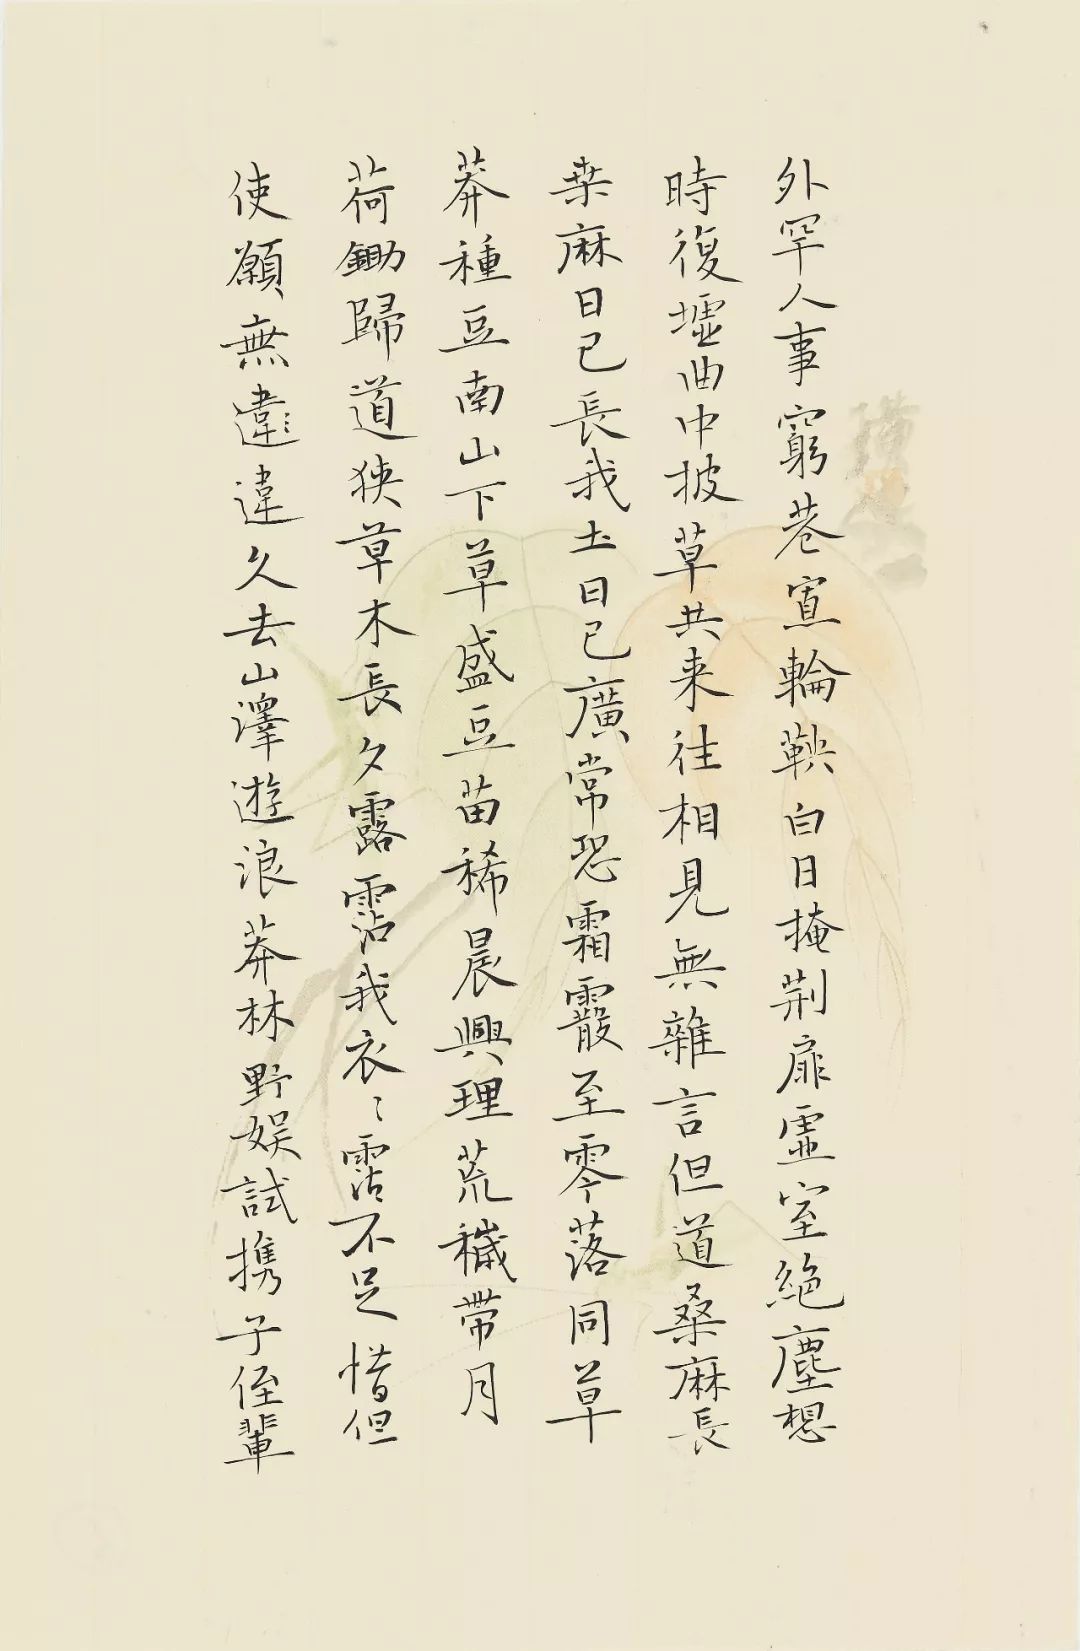 外罕人事窮巷寡輪鞅白日掩荊扉虛室絕塵想
時復墟曲中披草共来往相見無雜言但道桑麻長
桒麻日已長我土日已廣常恐霜霰至零落同草
莽種豆南山下草盛豆苗稀晨興理荒穢帶月
荷鋤歸道狹草木長夕露霑我衣〻霑不足惜但
使願無違違久去山澤遊浪莽林野娱試携子侄輩